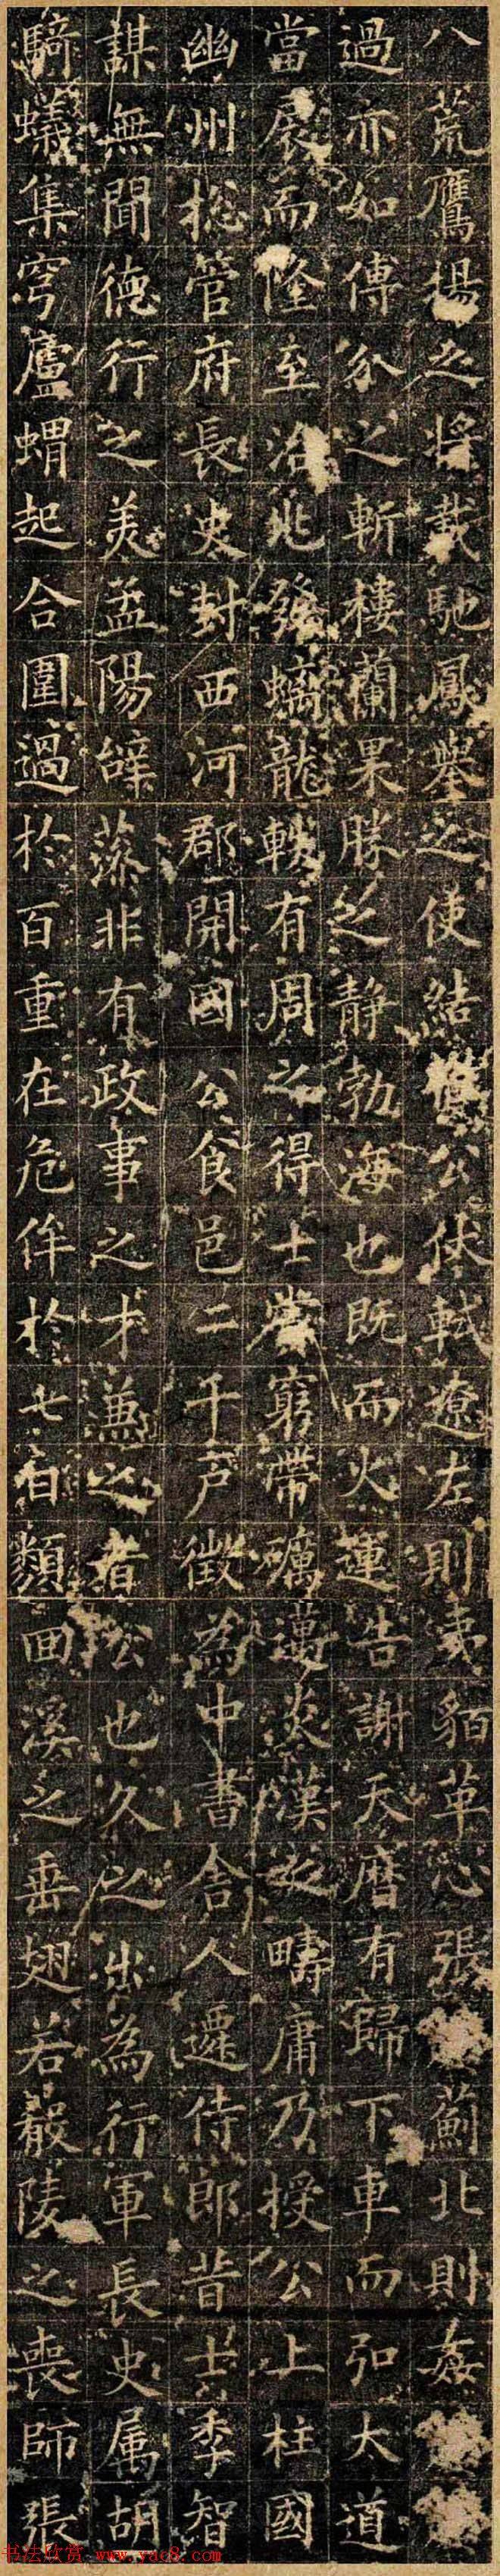 八荒鷹揚之將載馳鳳舉之使結轍公伏軾遼左則夷貊革心張薊北則姦
過亦如傅介之斬樓蘭果勝之静勃海也既而火運告謝天曆有歸下車而弘太道
當扆而隆至治兆發螭龍軼有周之得士裳窮帶礪邁炎漢之疇庸乃授公上柱國
幽州捴管府長史封西河郡開國公食邑二千户徵為中書舍人遷侍郎昔士季智
謀無聞德行之美孟陽辭藻非有政事之才兼之者公也久之出為行軍長史属胡
騎蟻集穹廬蝟起合圍過於百重在危侔於七日類囬溪之垂翅若嚴陵之喪師張
书法欣赏 www.yac8.com